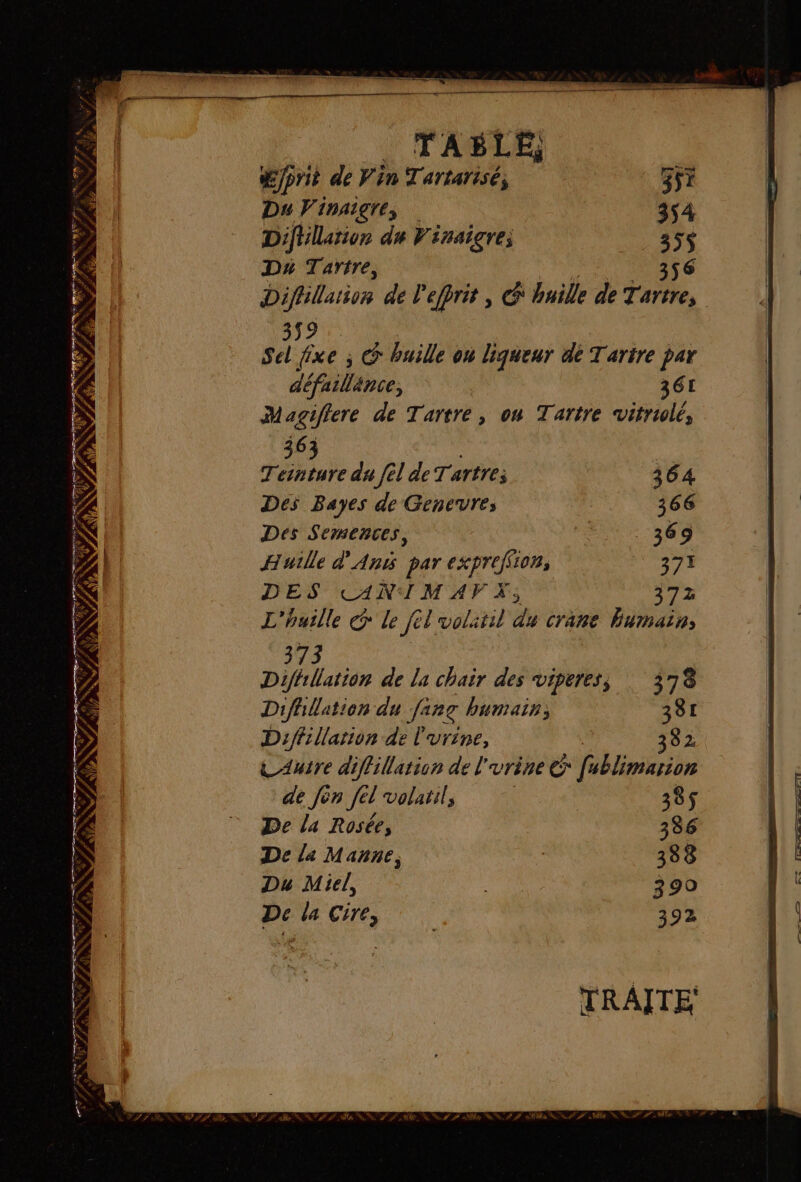 TABLE,
Eſprit de Vin Tartarisé, 351
Du Vinaigre, 354
Diſtillation du Vinaigre, 355
Du Tartre, 356
Diſtillation de l'eſprit, & huille de Tartre,
359
Sel fixe, & huille ou liqueur de Tartre par
défaillance, 361
Magiſtere de Tartre, ou Tartre vitriolé,
363
Teinture du ſel de Tartre, 364
Des Bayes de Genevre, 366
Des Semences, 369
Huille d'Anis par expreſsion, 371
DES ANIMAVX, 372
L'huille & le ſel volatil du crane humain,
373
Diſtillation de la chair des viperes, 378
Diſtillation du ſang humain, 381
Diſtillation de l'vrine, 382
Autre diſtillation de l'vrine & ſublimation
de ſon ſel volatil, 385
De la Rosée, 386
De la Manne, 388
Du Miel, 390
De la Cire, 392
TRAITE'